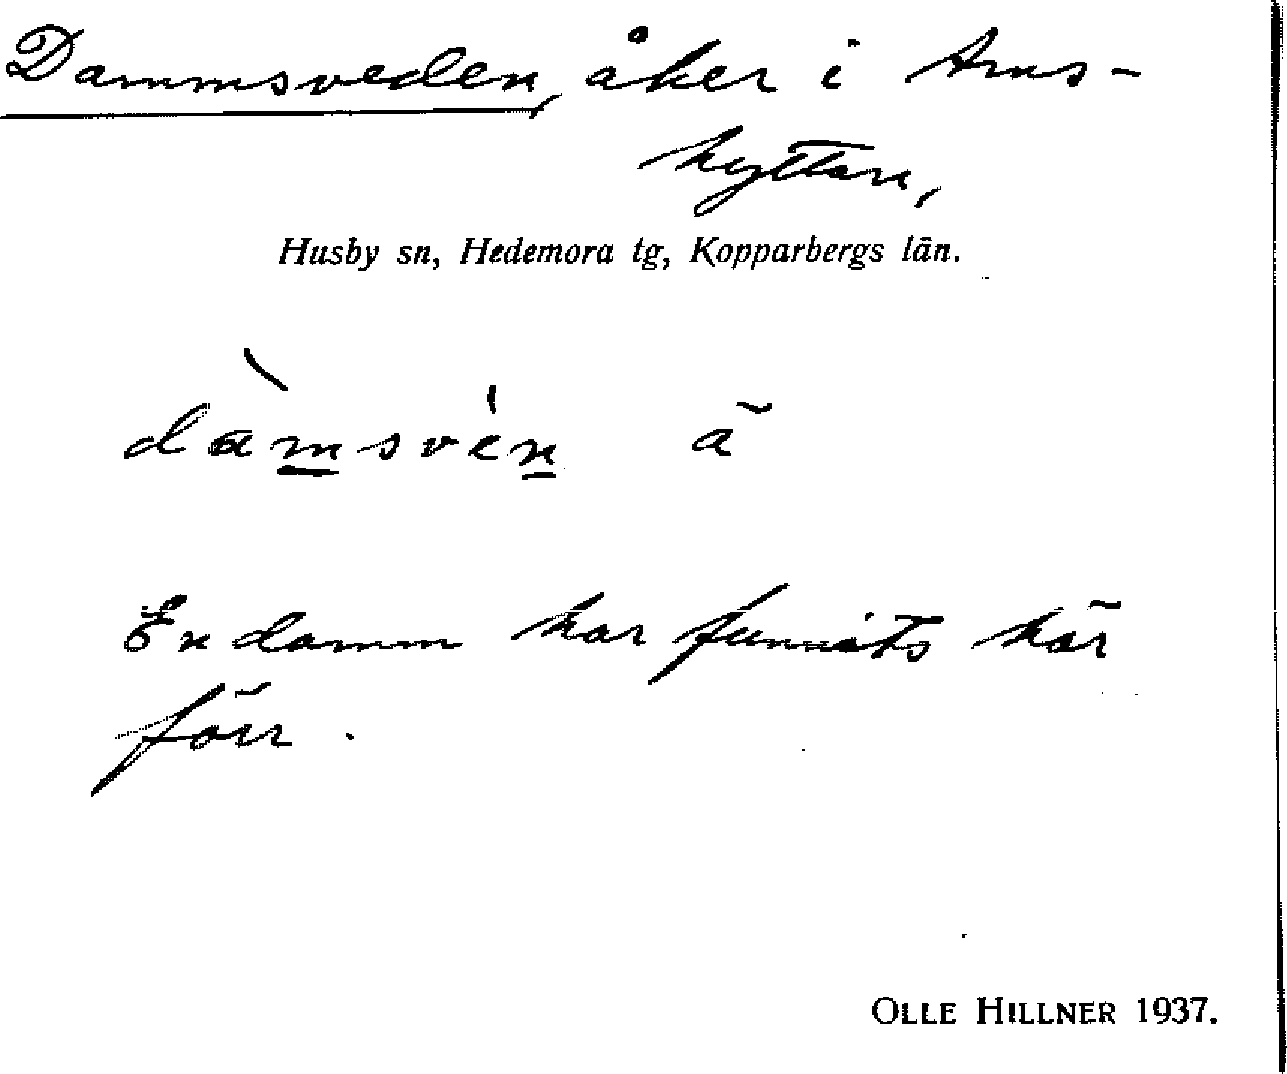 Dammsveden, åker i Arns-
hyttan,
Husby sn, Hedemora tg, Kopparbergs län.
dàmsvén ã
En damm har funnits här
förr.
OLLE HILLNER 1937.